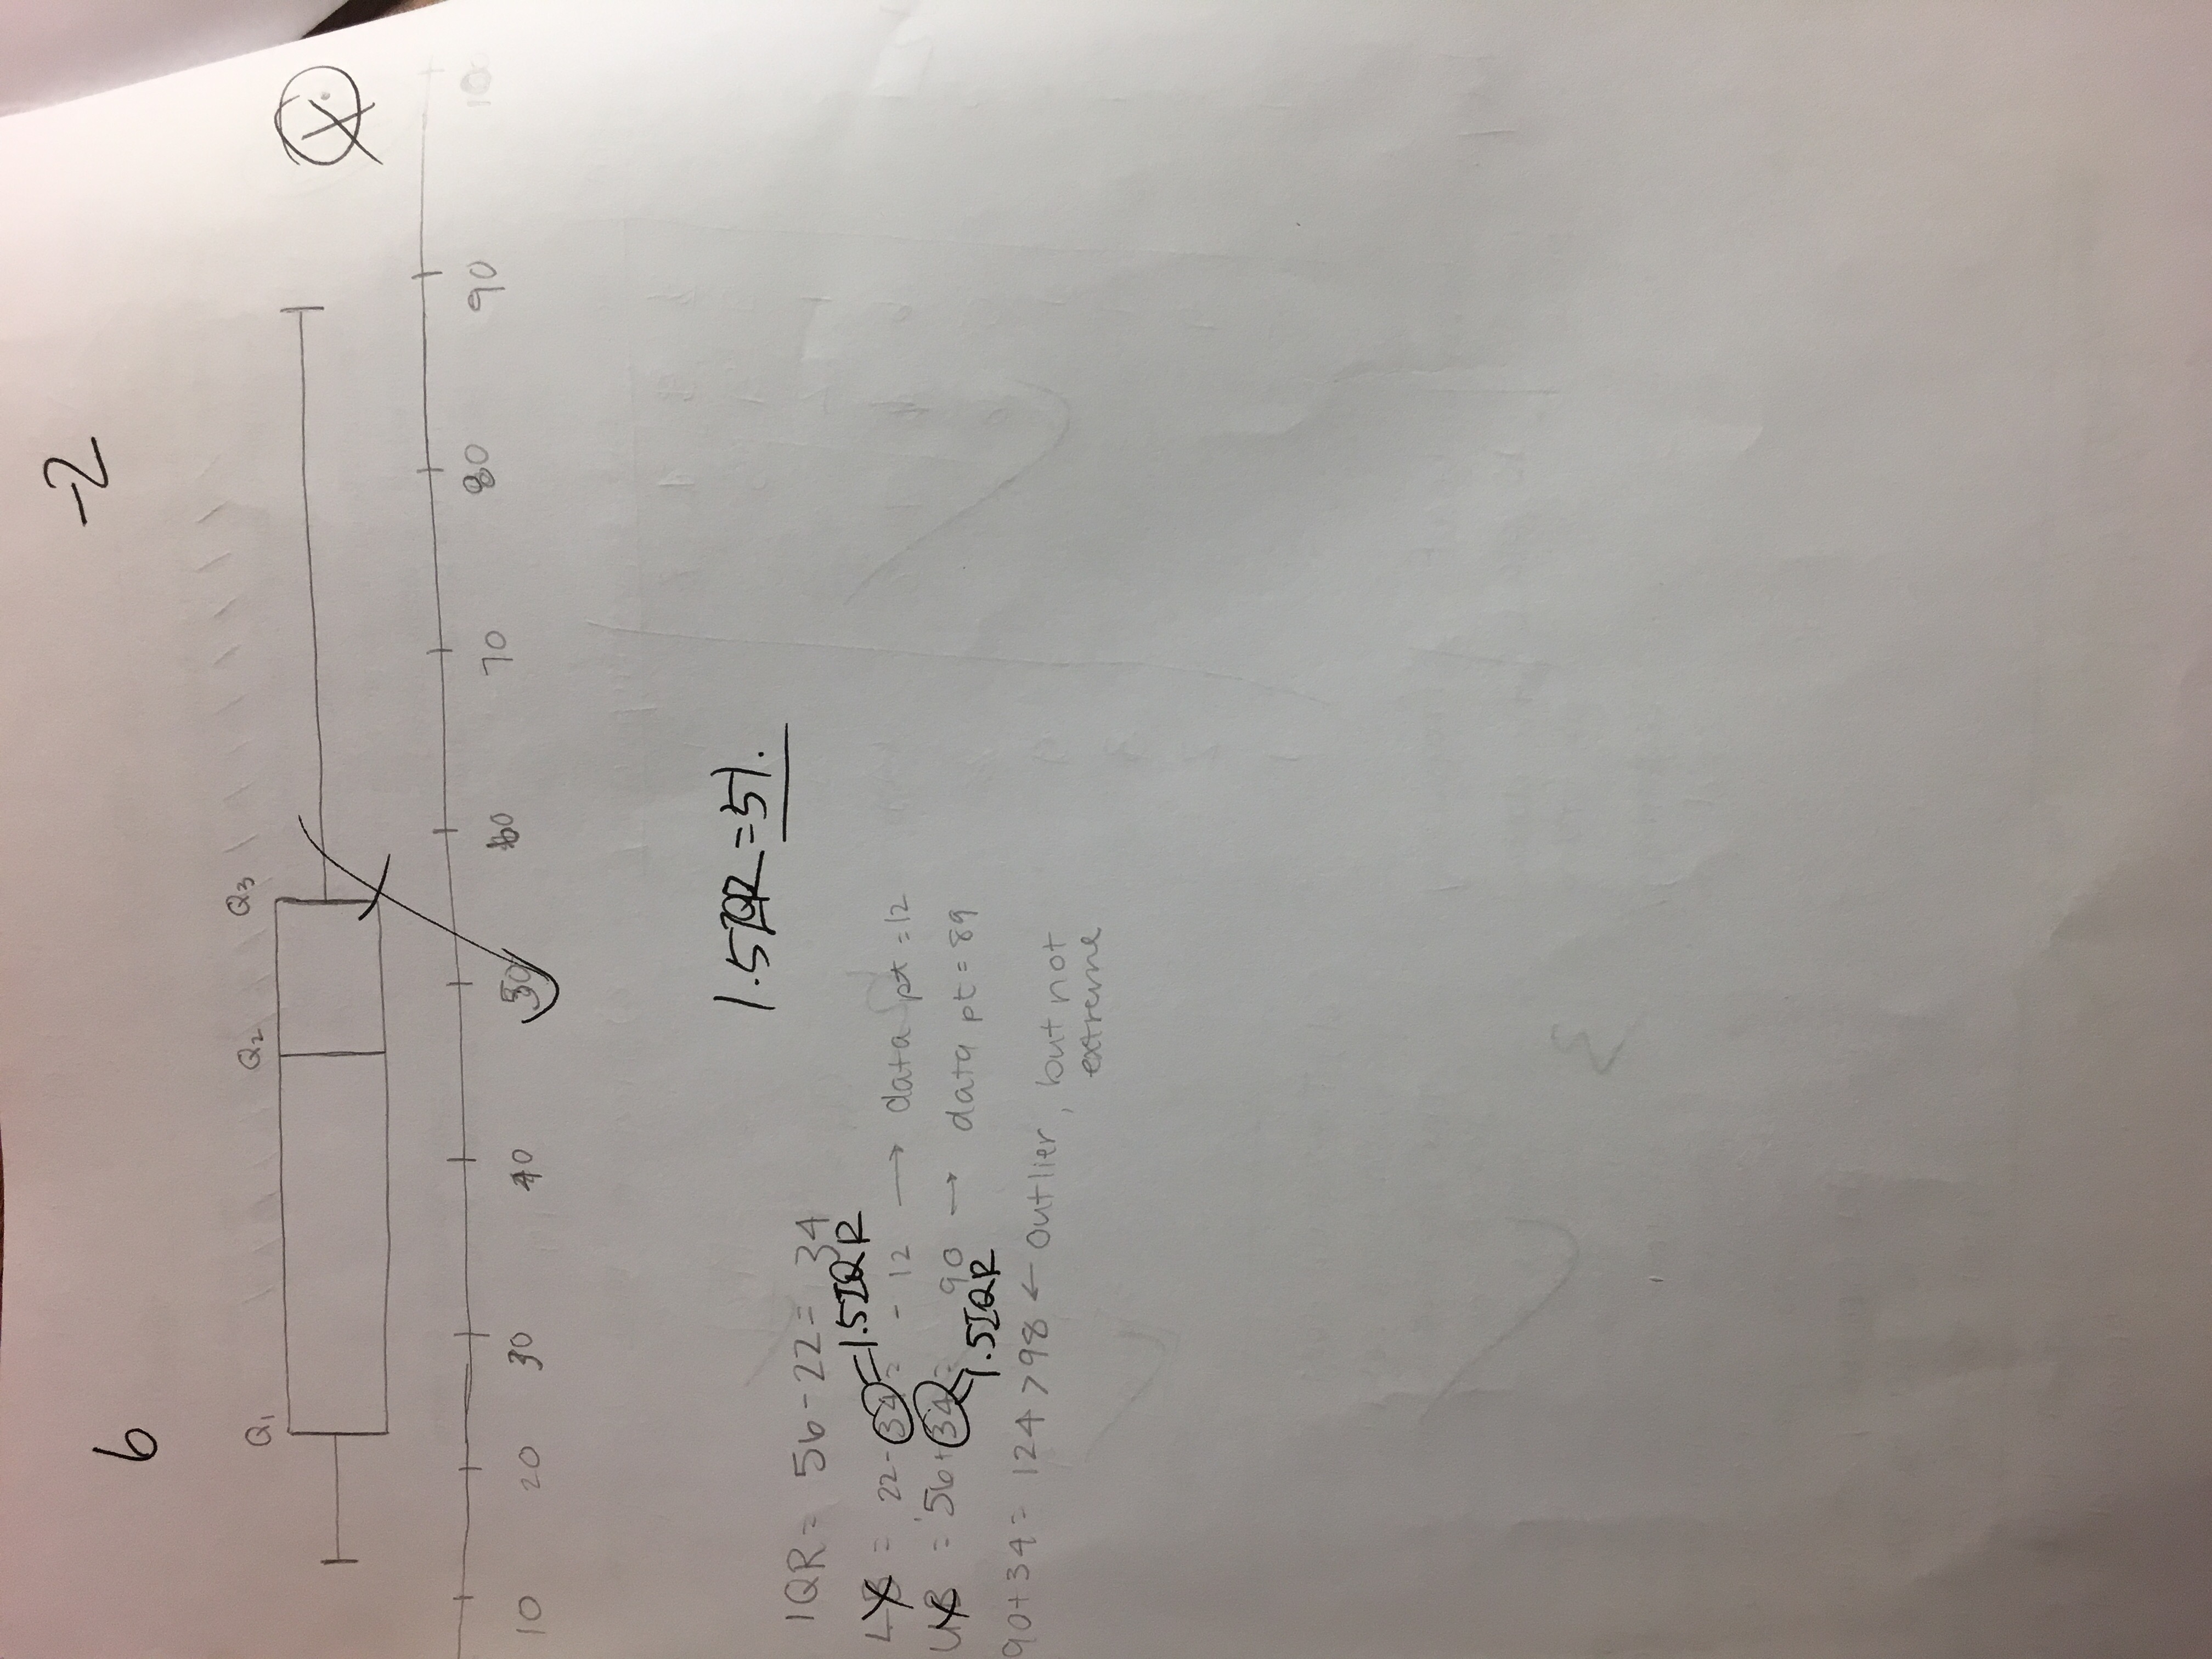 6 -2
Q1 Q2 Q3
10 20 30 40 50 60 70 80 90
1.5IQR = 51.
IQR = 56 - 22 = 34
= 1.5IQR
LB = 22 - 34 = - 12 → data pt = 12
UB = 56 + 34 = 90 → data pt = 89
1.5IQR
90 + 34 = 124 > 98 ← outlier, but not
extreme